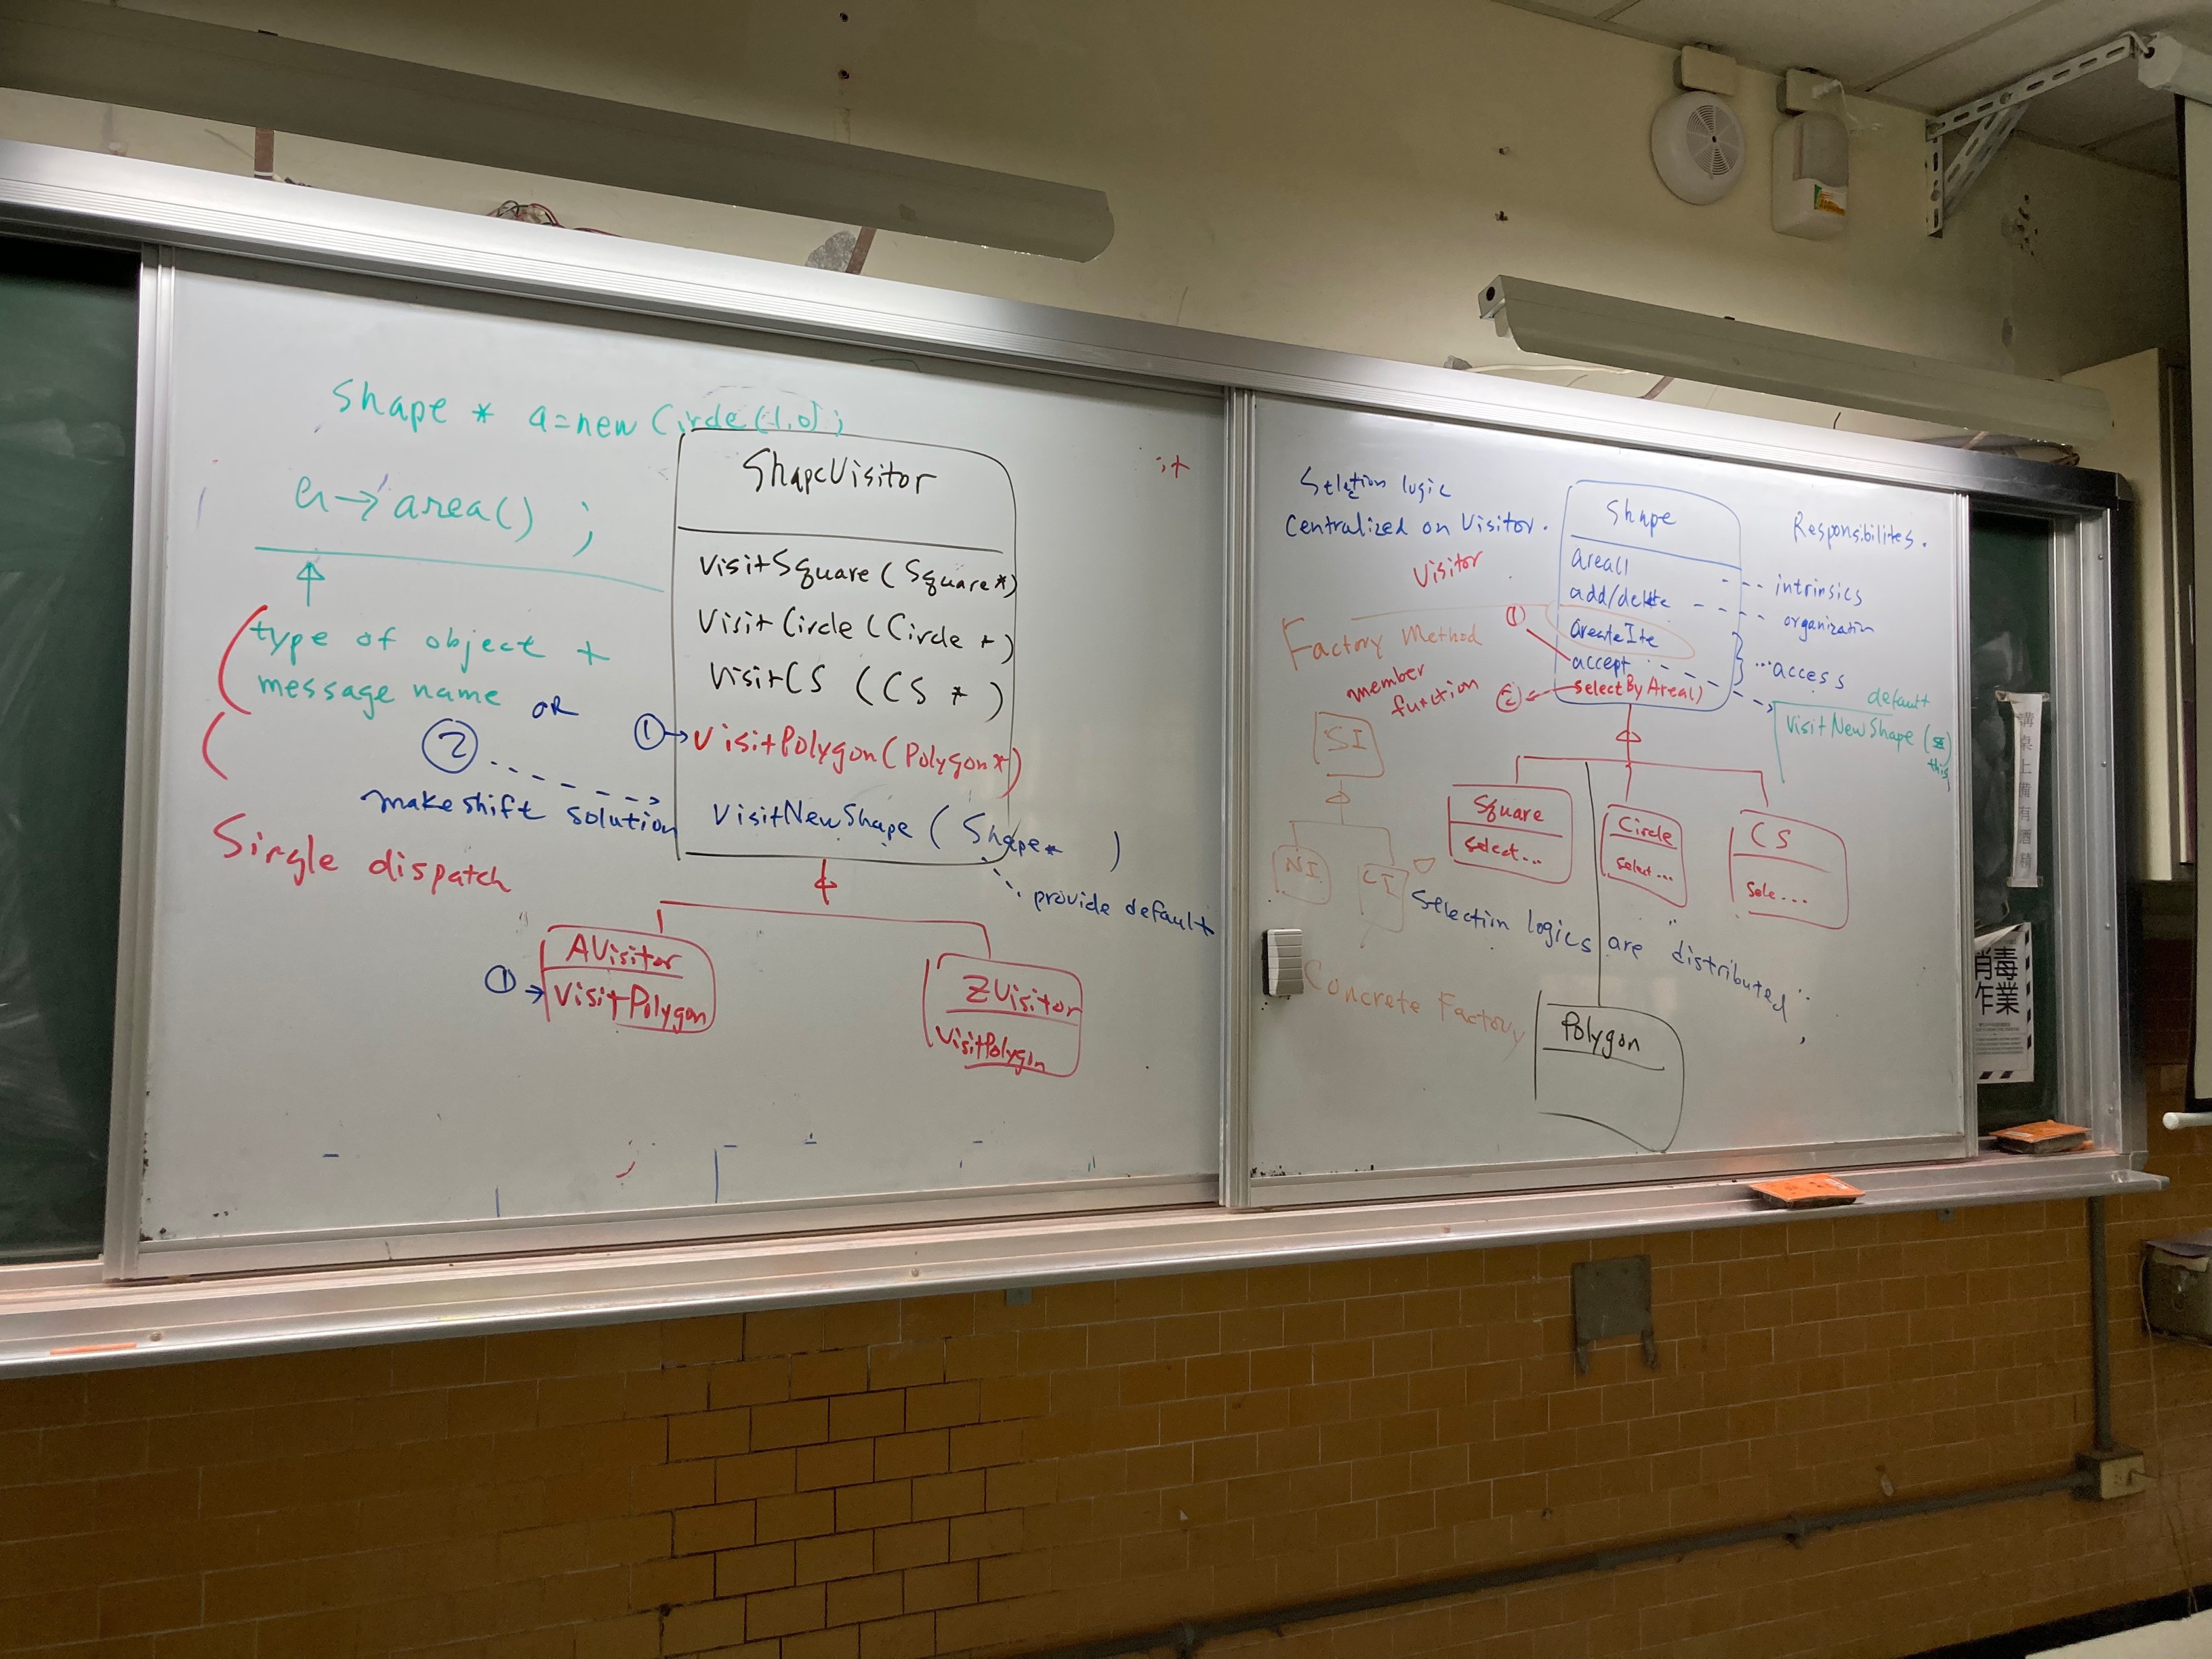 Shape * a=new Circle(1,0);
a→area() ;
type of object +
message name OR
② makeshift solution
Single dispatch
ShapeVisitor
VisitSquare(Square*)
VisitCircle(Circle *)
VisitCS (CS *)
①→VisitPolygon(Polygon*)
VisitNewShape(Shape* )
provide default
AVisitor
①→VisitPolygon
ZVisitor
VisitPolygon
it
Selection logic
Centralized on Visitor.
Visitor
Factory Method
member
function
①
②
Shape
area()
add/delete
createIte
accept
selectByArea()
Responsibilites.
intrinsics
organization
access
default
VisitNewShape(
this
SI
NI
CI
Square
Select...
Circle
Select...
CS
Sele....
Selection logics are "distributed"
Concrete Factory
Polygon
講桌上備有酒精
消毒
作業